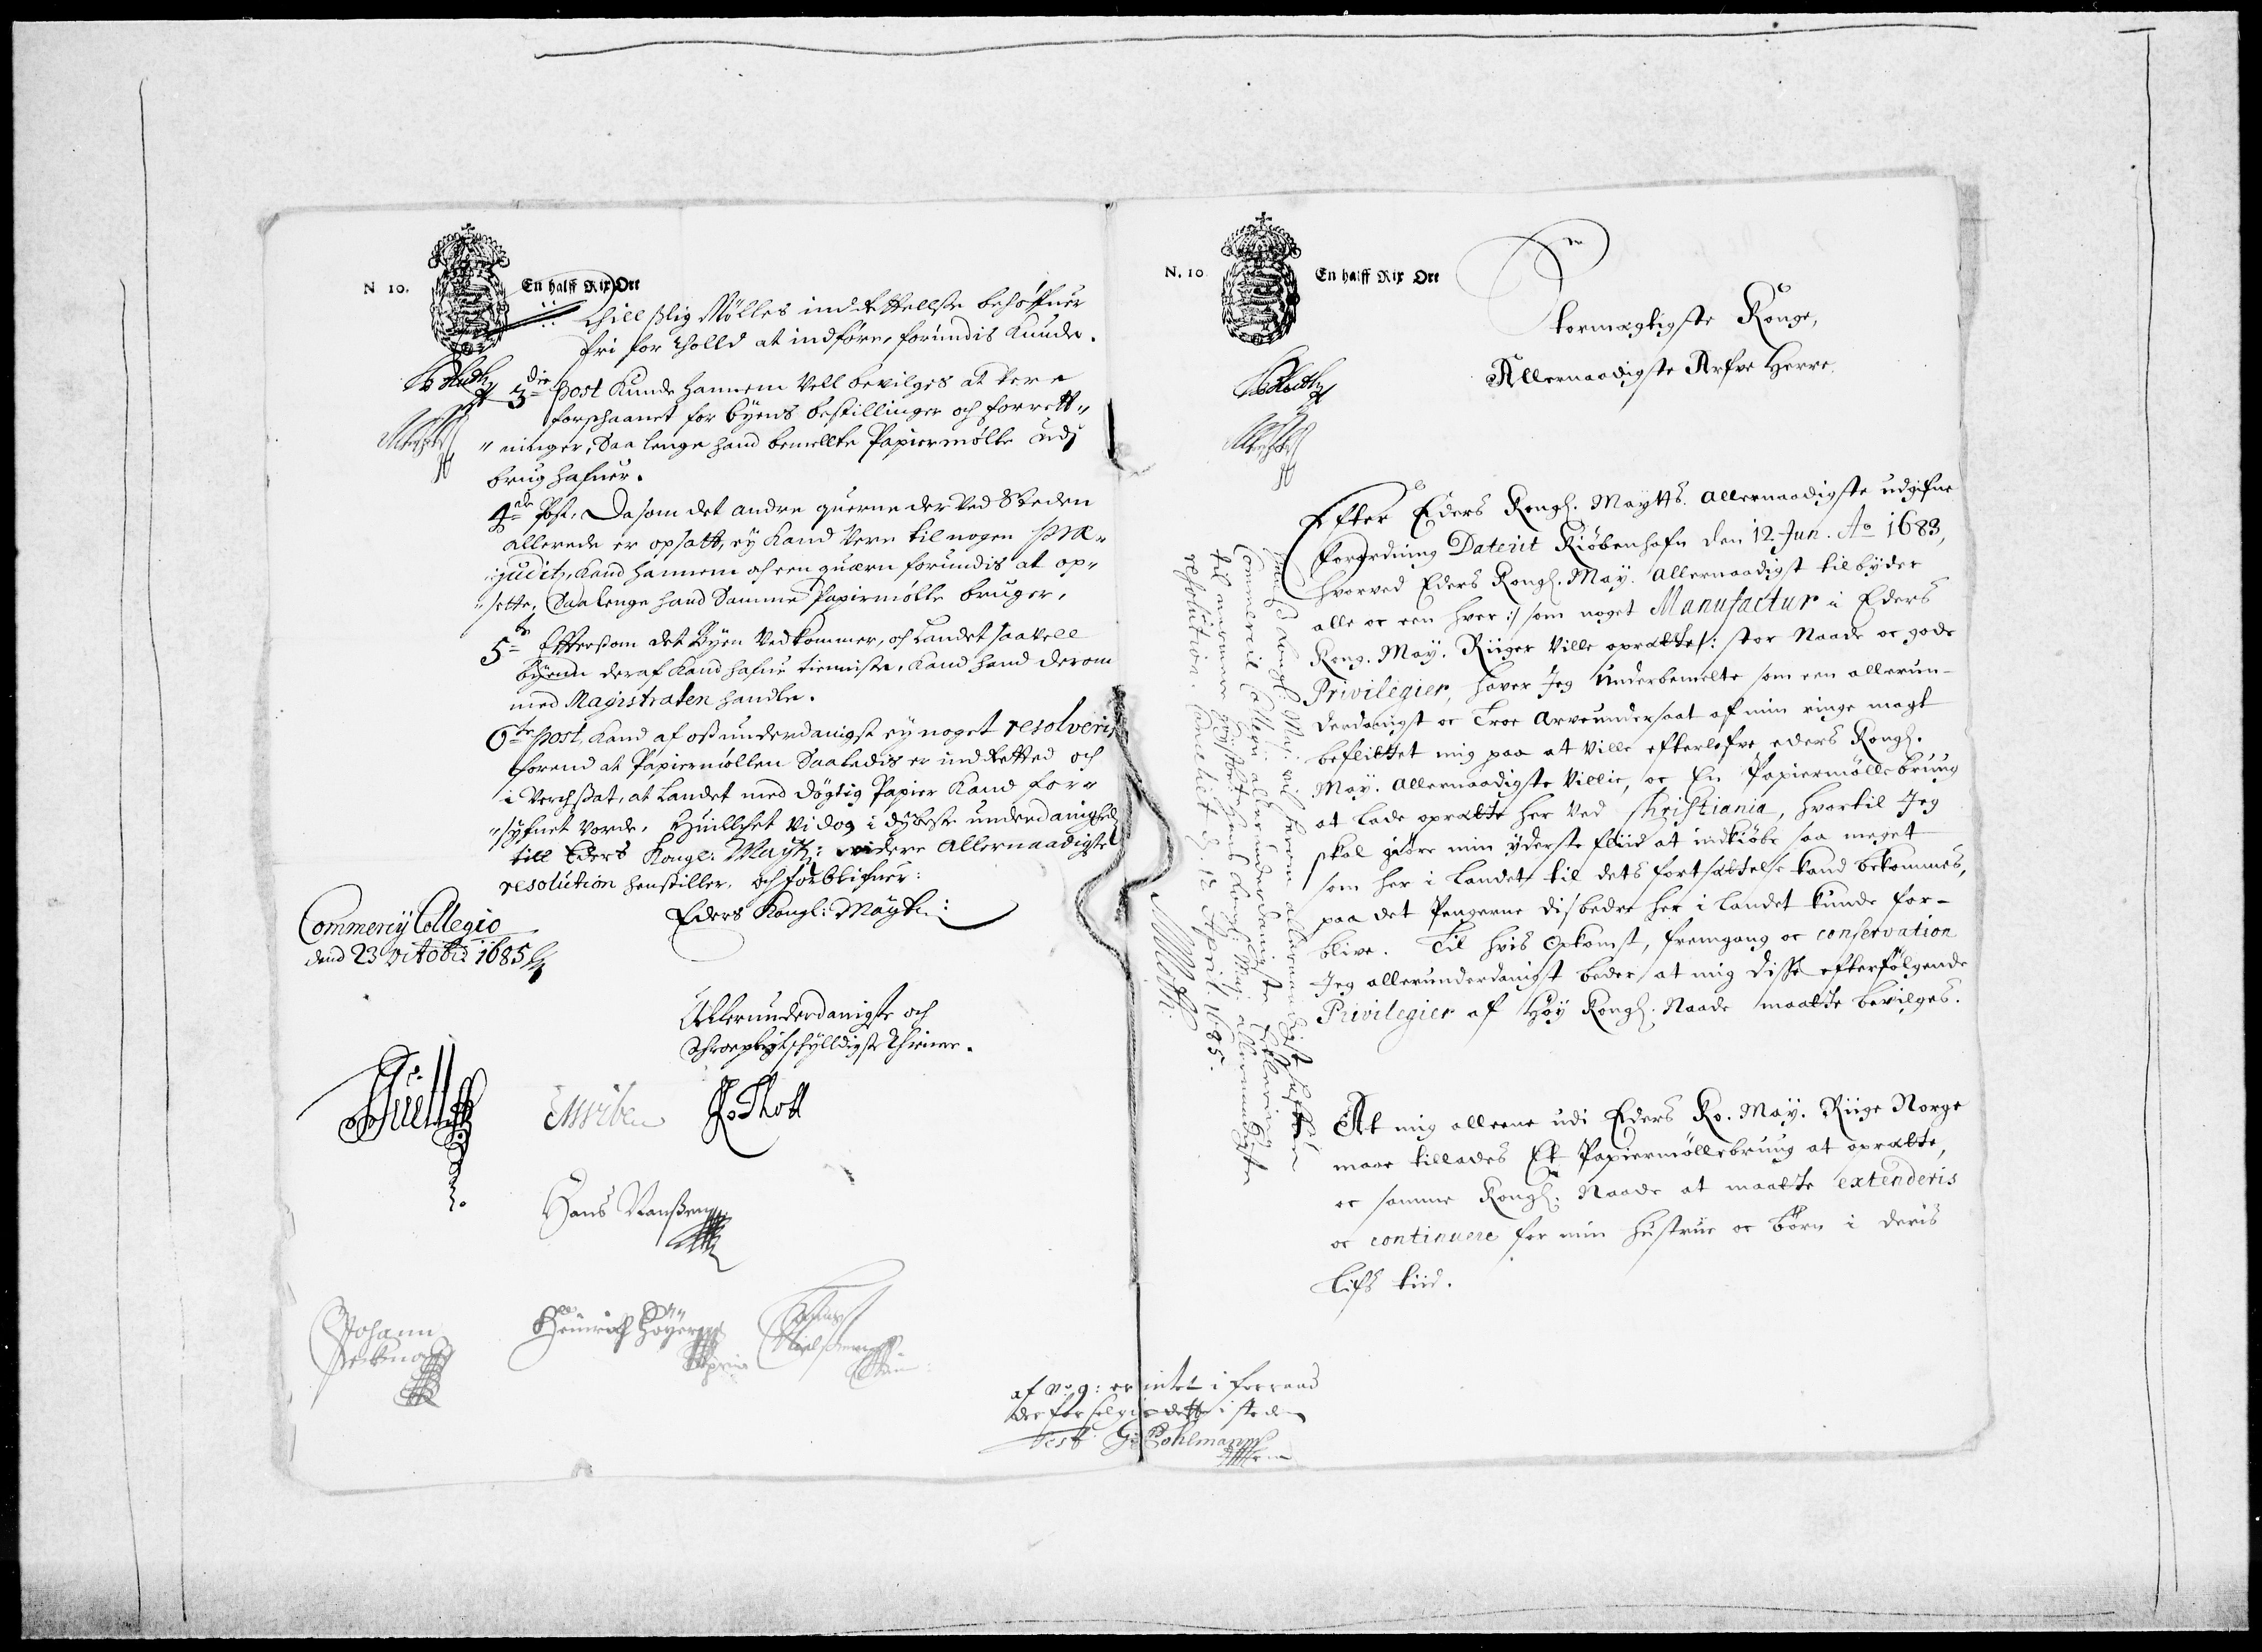 N 10.
En halff Rix Ort
till slig Mølles indrettelse behøfuer
fri for Thold at indføre, forundis kunde.
3die post kunde hannem vell bevilges at vere
forschaanet for byens bestillinger och forrett„
„ninger, Saa lenge hand bemellte Papiermølle udj
brug hafuer.
4de Post, Dasom det andre querne der ved Steden
allerede er opsatt, ej kand vere til nogen præ„
„juditz, kand hannem och een quærn forundis at op„
„sette, Saalenge hand Samme Papirmølle bruger,
5te Effterssom det Byen vedkommer, och Landet saavell
byenn deraf kand hafue tienniste, kand hand derom
med Magistraten handle.
6te post, kand af oss underdanigst ey noget resolveris
førend at Papiermøllen Saaledis er indretted och
i Verchsat, at Landet med døgtig Papier kand for„
„syfnet vorde, Huillchet vi dog i dybeste underdanighed
till Eders Kongl: Maytz: videre Allernaadigste
resolution henstiller, och forblifuer:
Eders Kongl: Mayts:
Commercij Collegio
dend 23 octobr: 1685
Allerunderdanigste och
Throepligtschylldigste Thienere.
Hans Nanssen
Johann
Heinrich Høyer
af No 9: er intet i forraad
der for selgis dette i steden
Test. G. Pohlmann
N. 10
En halff Rix Ort
Stormægtigste Konge,
Allernaadigste Arfve Herre
Efter Eders Kongl. Maytts. allernaadigste udgifne
Forordning Daterit Kiøbenhafn den 12. Jun. Ao 1683,
hvorved Eders Kongl. May. Allernaadigst tilbyder
alle oc een hver :/ som noget Manufactur i Eders
Kong. May. Riiger ville oprætte /: stor Naade oc gode
Privilegier, haver Jeg underbemelte som een allerun-
derdanigst oc Troe Arveundersaat af min ringe magt
beflittet mig paa at ville efterlefve eders Kongl.
May. Allernaadigste Villie, oc En Papiermøllebruug
at lade oprætte her ved Christiania, hvortil Jeg
skal giøre min yderste fliid at indkiøbe saa meget
som her i Landet til dets fortsættelse kand bekommes,
paa det Pengerne disbedre her i landet kunde for-
blive. Til hvis Opkomst, fremgang oc conservation
Jeg allerunderdanigst beder at mig disse efterfølgende
Privilegier af Høy Kongl. Naade maatte bevilges.
At mig alleene udi Eders Ko. May. Riige Norge
maae tillades Et Papiermøllebruug at oprætte,
oc samme Kongl. Naade at maatte extenderis
oc continuere for min hustrue oc børn i deris
lifs tiid.
Hans Kongl: May: vil herom allernaadigst hafve
Commercii Collegii allerunderdanigste Erklering
resolution. Cancelliet d. 12 April 1685.